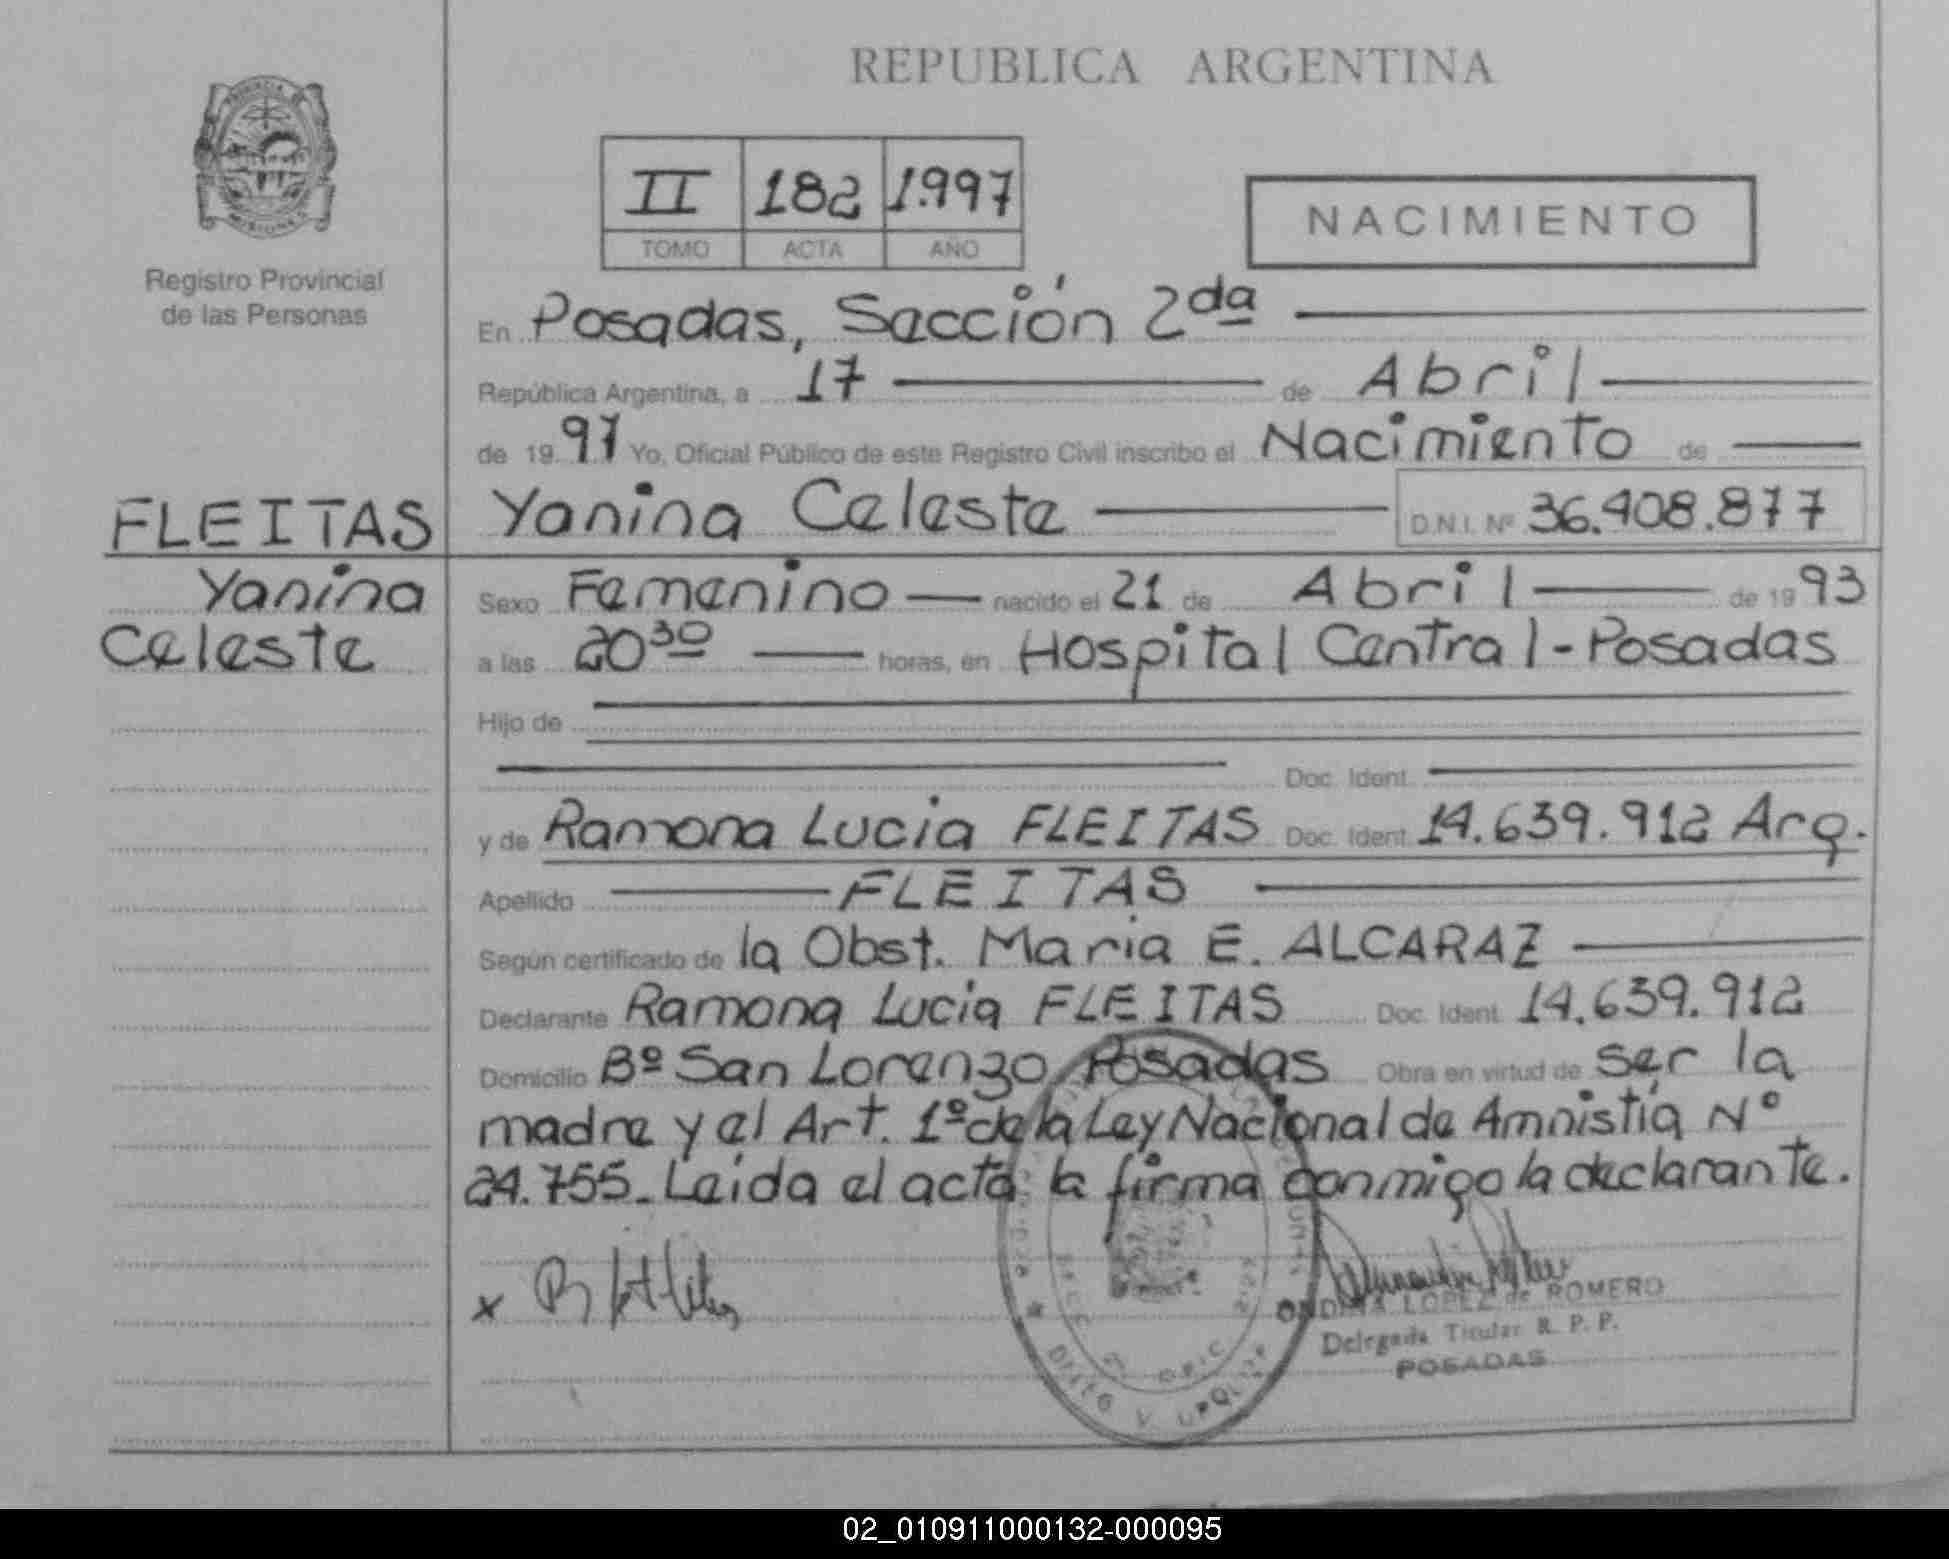 REPUBLICA ARGENTINA
II 182 1.997
TOMO ACTA AÑO
NACIMIENTO
Registro Provincial
de las Personas
En Posadas, Sección 2da
República Argentina, a 17 de Abril
de 19 97 Yo, Oficial Público de este Registro Civil inscribo el Nacimiento de
FLEITAS Yanina Celeste D.N.I. Nº 36.408.877
Yanina
Celeste
Sexo Femenino nacido el 21 de Abril de 19 93
a las 20 30 horas, en Hospital Central - Posadas
Hijo de
Doc. Ident.
y de Ramona Lucia FLEITAS Doc. Ident. 14.639.912 Arg.
Apellido FLEITAS
Según certificado de la Obst. Maria E. ALCARAZ
Declarante Ramona Lucia FLEITAS Doc. Ident. 14.639.912
Domicilio Bº San Lorenzo Posadas Obra en virtud de ser la
madre y el Art. 1º de la Ley Nacional de Amnistía Nº
24.755. Leida el acta la firma conmigo la declarante.
x
LOPEZ de ROMERO
Delegada Titular R. P. P.
POSADAS
02_010911000132-000095